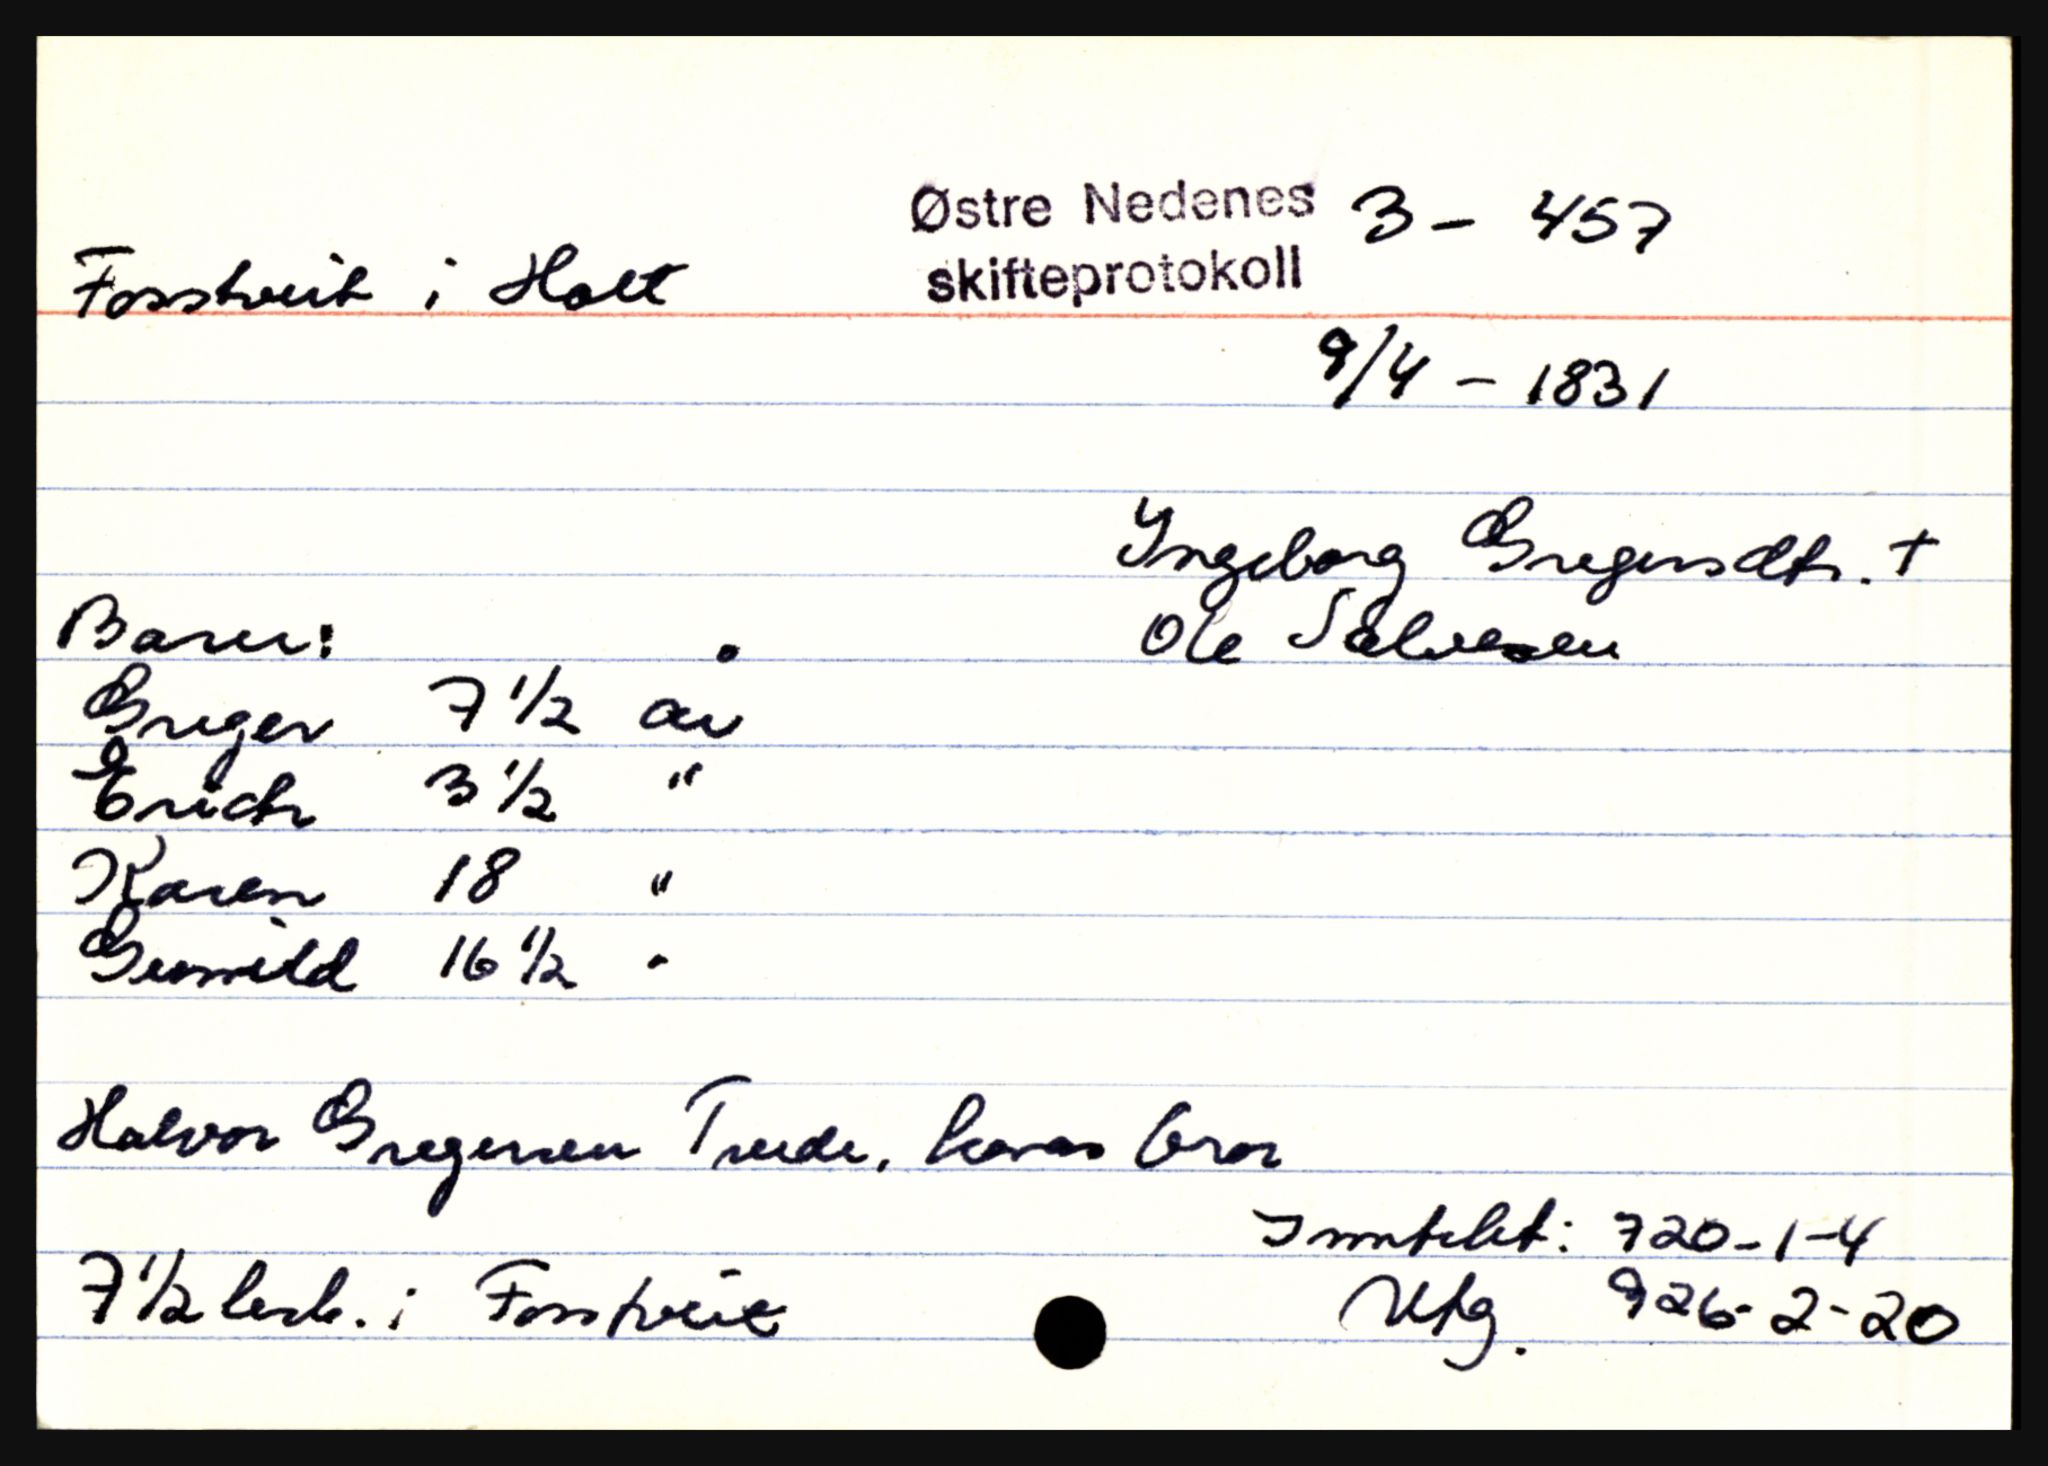 Østre Nedenes 3 - 457
skifteprotokoll
Fosstveit i Holt
9/4 - 1831
Yngeborg Gregersdtr. +
Ole Salvesen
Barn:
Greger 7 1/2 år
Erich 3 1/2 "
Karen 18 "
Gunnild 16 1/2 "
Halvor Gregersen Tveide, konas bror
Inntekt: 720-1-4
7 1/2 lesb. i Fosstveit
Utg. 926-2-20